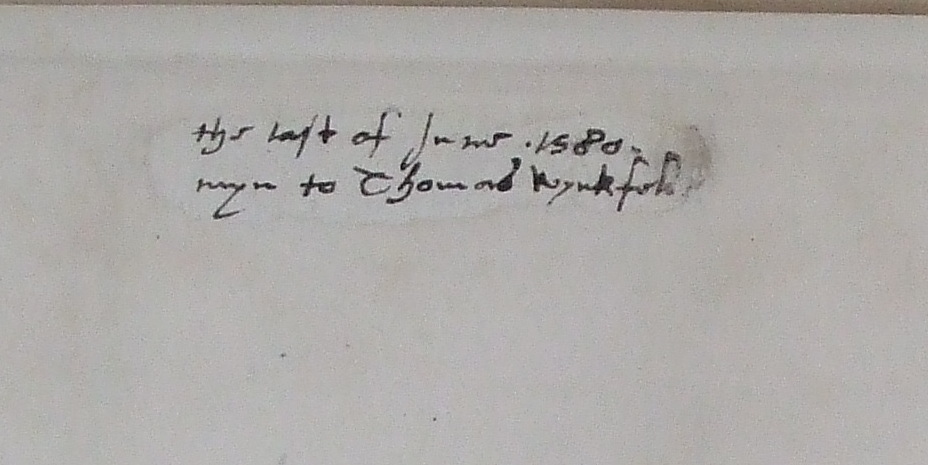 the last of June .1580.
myn to Thomas